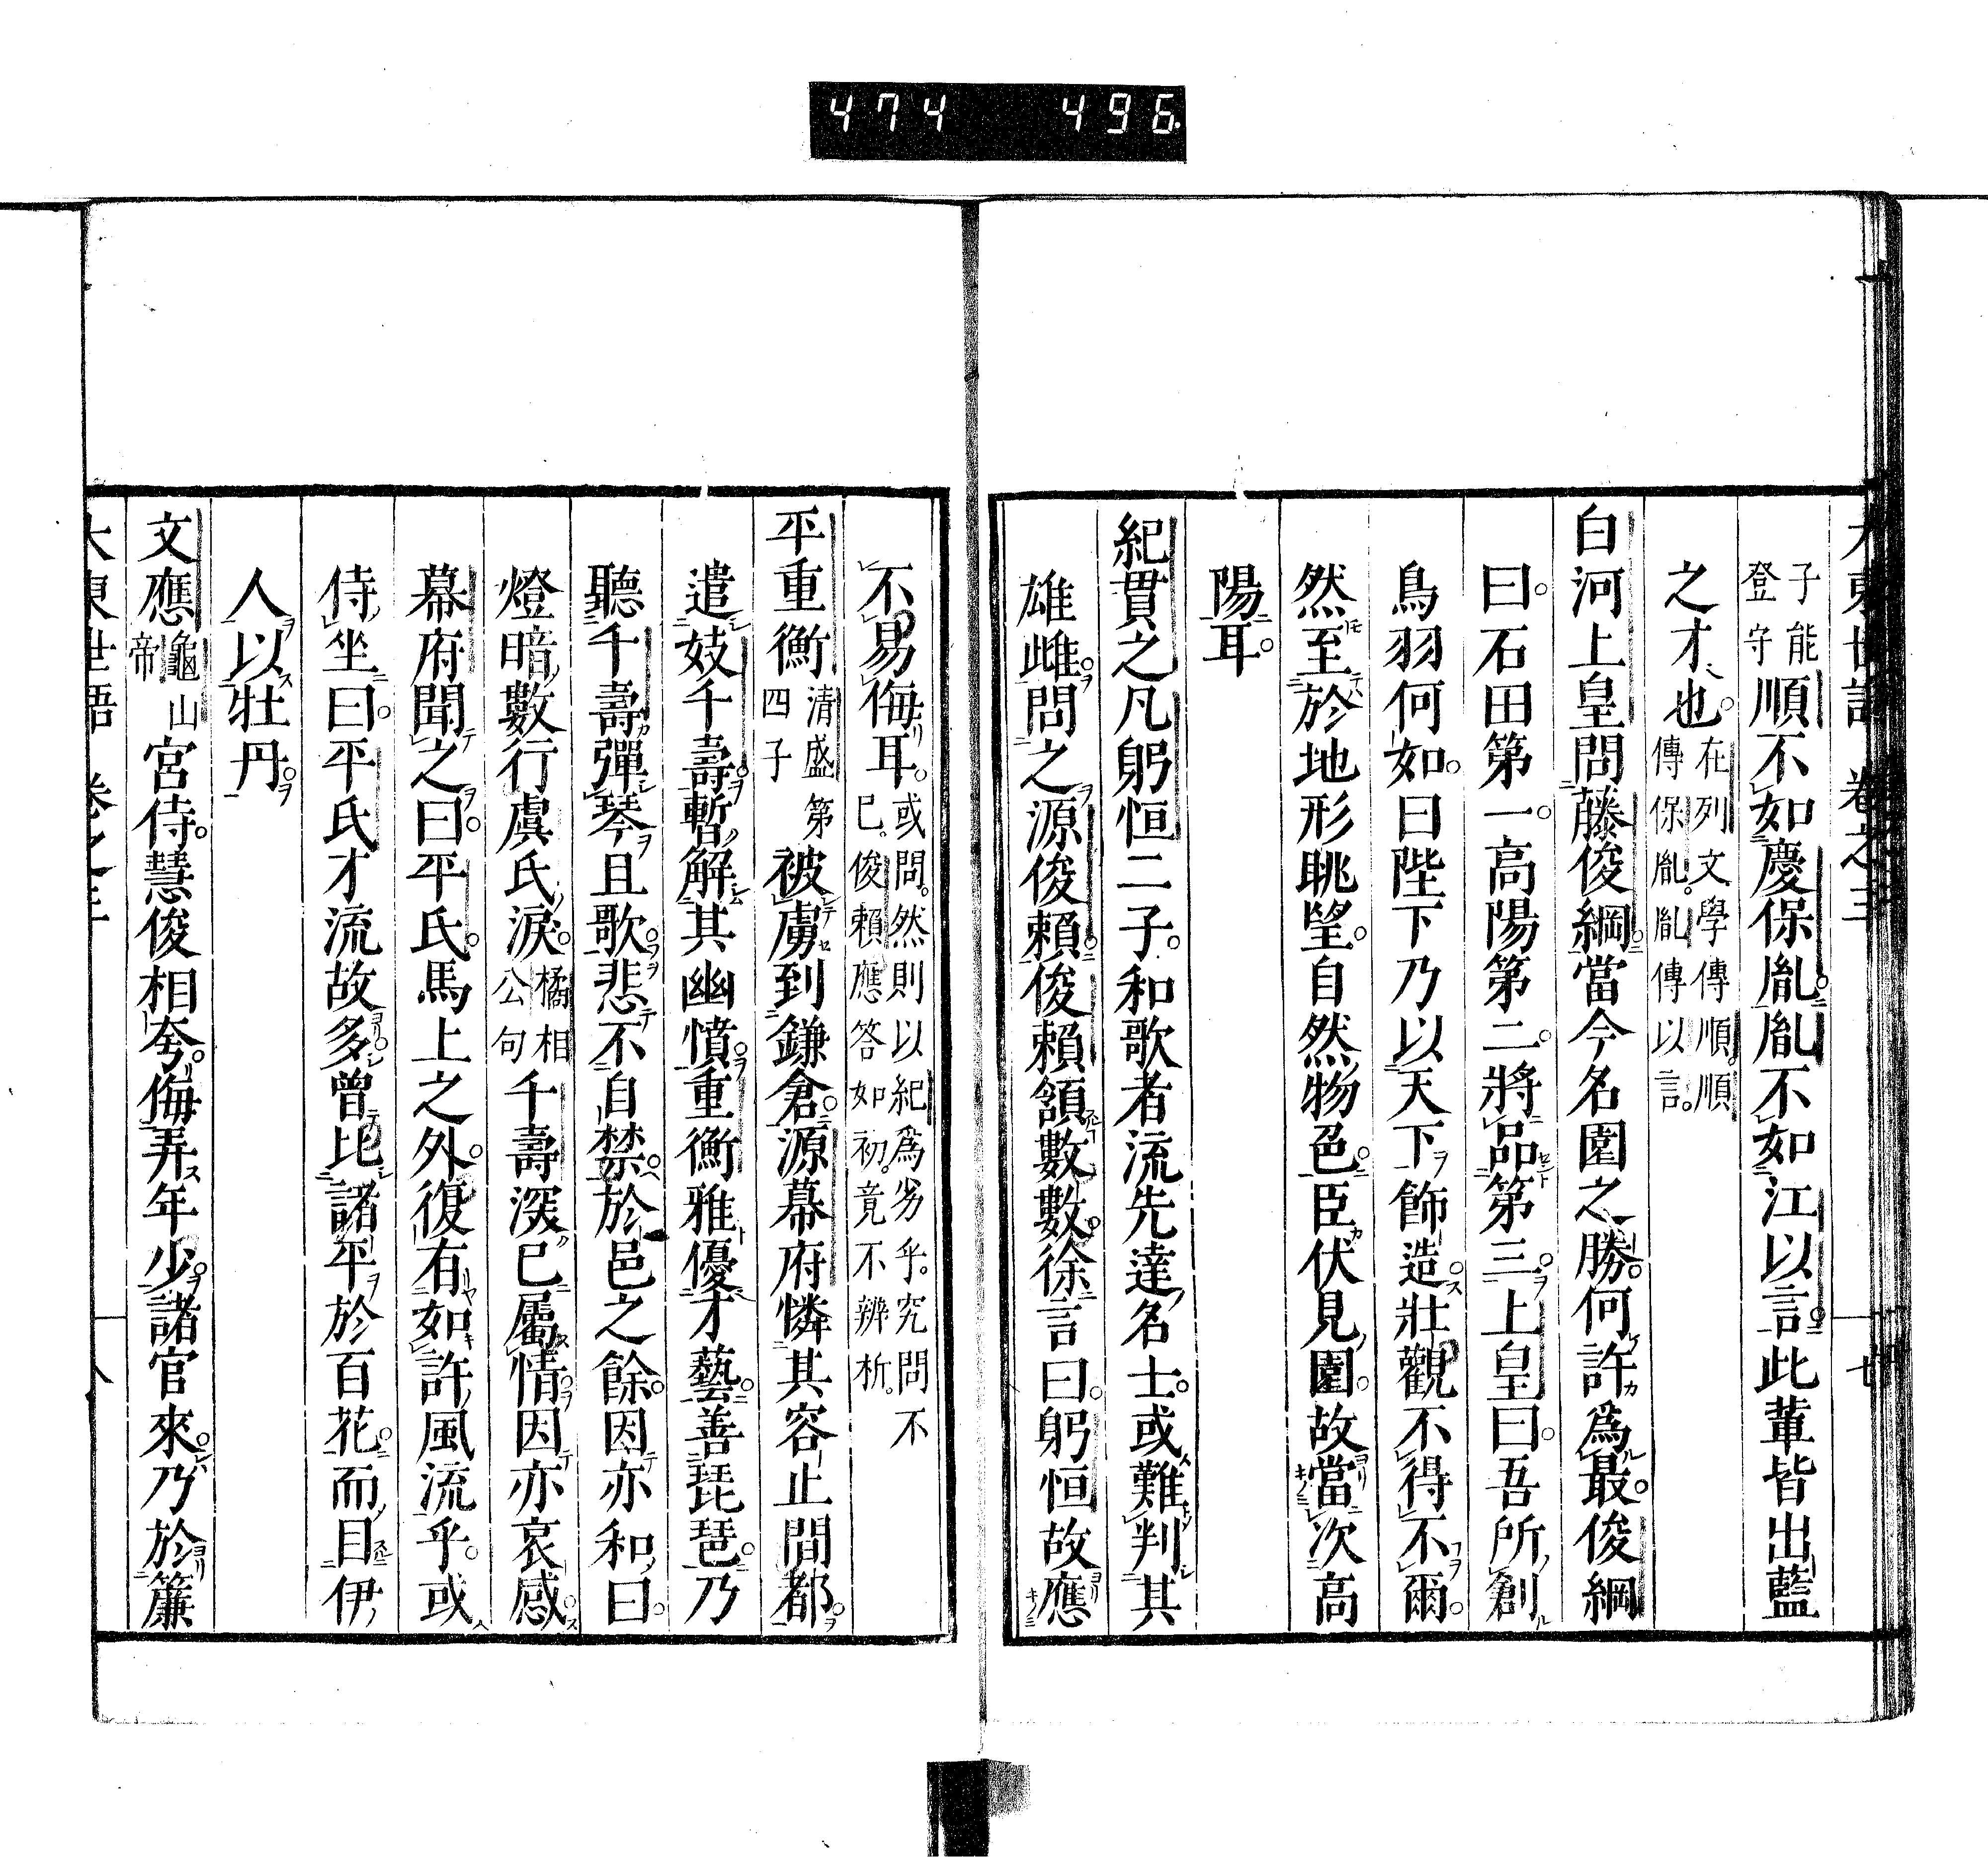 474 496
大東世語 卷之三 七
子能登守順不如慶保胤胤不如江以言此輩皆出藍
之才也在列文學傳順順傳保胤胤傳以言
白河上皇問藤俊綱當今名園之勝何許爲最俊綱
曰石田第一高陽第二將品第三上皇曰吾所創
鳥羽何如曰陛下乃以天下飾造壯觀不得不爾
然至於地形眺望自然物色臣伏見園故當次高
陽耳
紀貫之凡躬恒二子和歌者流先達名士或難判其
雄雌問之源俊賴俊賴頷數數徐言曰躬恒故應
不易侮耳或問然則以紀爲劣乎究問不已俊賴應答如初竟不辨析
平重衡清盛第四子被虜到鎌倉源幕府憐其容止間都
遣妓千壽暫解其幽憤重衡雅優才藝善琵琶乃
聽千壽彈琴且歌悲不自禁於邑之餘因亦和曰
燈暗數行虞氏淚橘相公句千壽深已屬情因亦哀感
幕府聞之曰平氏馬上之外復有如許風流乎或
侍坐曰平氏才流故多曾比諸平於百花而目伊
人以牡丹
文應龜山帝宮侍慧俊相夸侮弄年少諸官來乃於簾
大東世語 卷之三 八